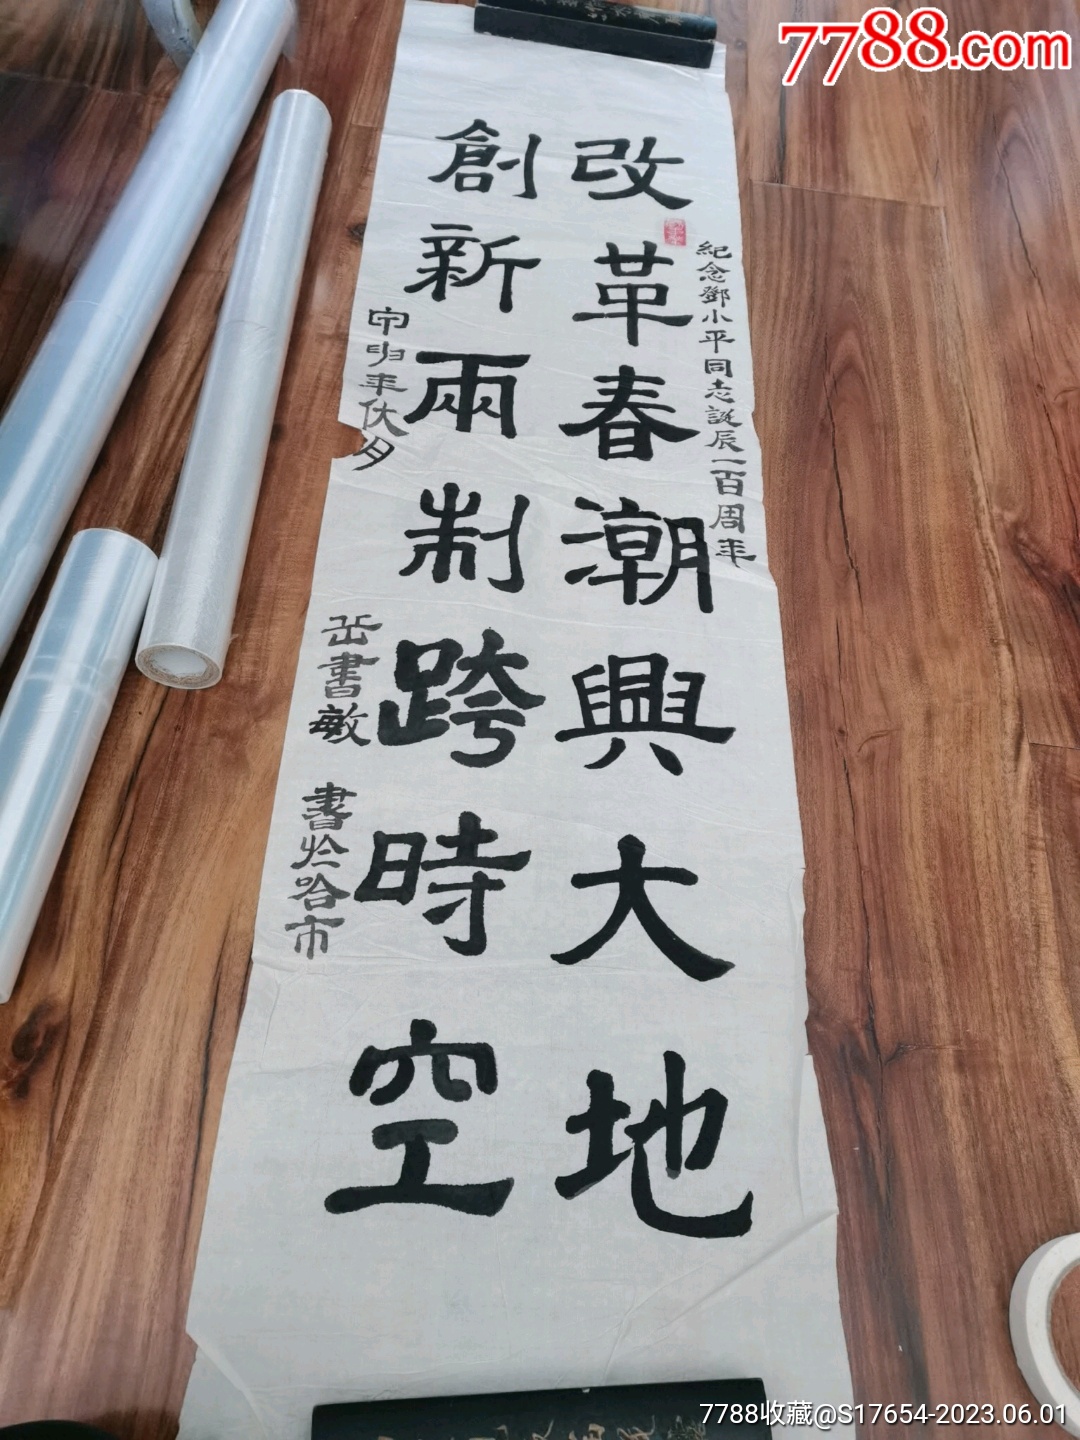 7788.com
紀念鄧小平同志誕辰一百周年
改革春潮興大地
創新兩制跨時空
年伏月
岳書敏
書於哈市
7788收藏@S17654-2023.06.01